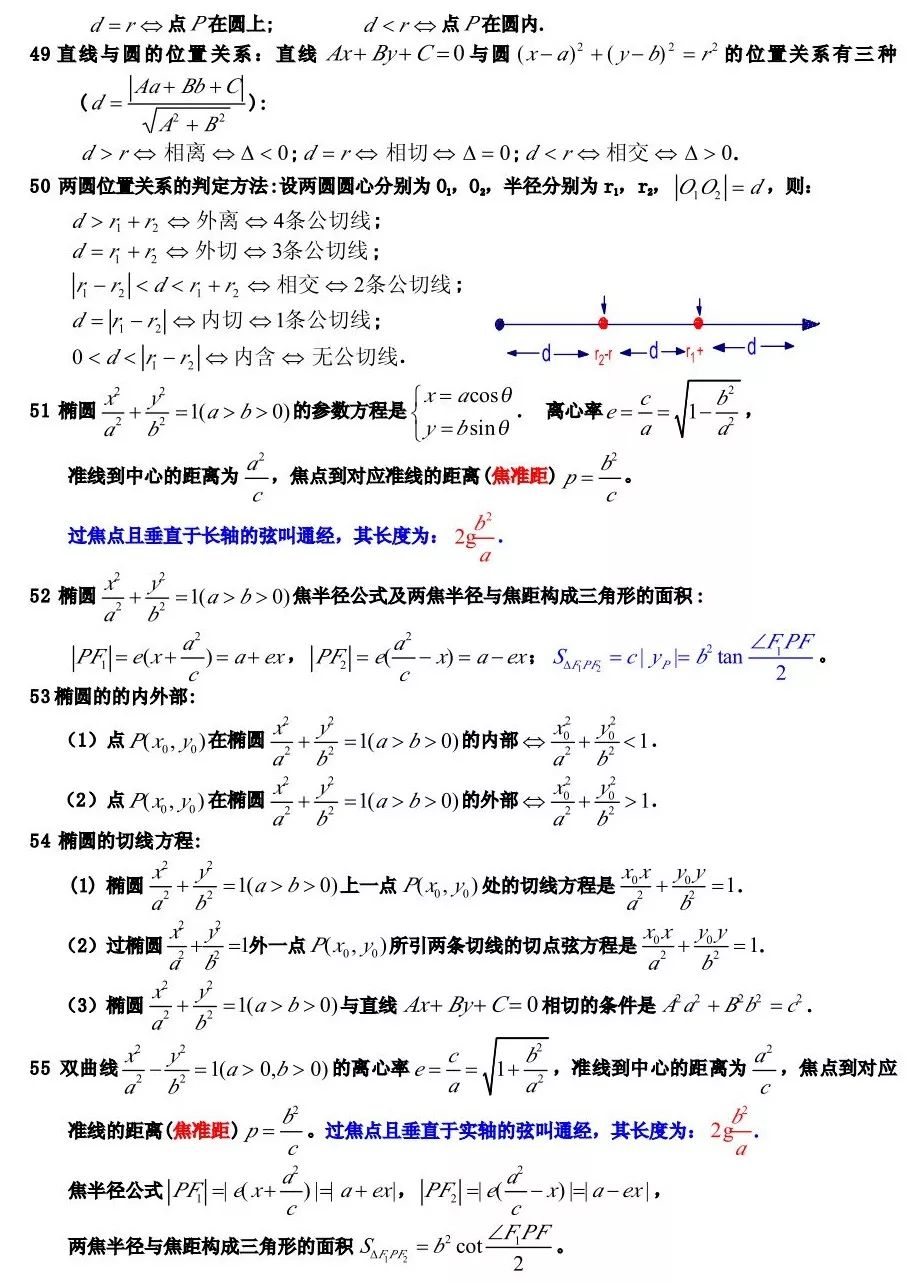 d = r ⇔ 点 P 在圆上; d < r ⇔ 点 P 在圆内.
49 直线与圆的位置关系：直线 Ax+By+C=0 与圆 (x−a)²+(y−b)²=r² 的位置关系有三种
(d=|Aa+Bb+C|/√(A²+B²)):
d>r⇔ 相离 ⇔Δ<0; d=r⇔ 相切 ⇔Δ=0; d<r⇔ 相交 ⇔Δ>0.
50 两圆位置关系的判定方法:设两圆圆心分别为 O₁，O₂，半径分别为 r₁，r₂，|O₁O₂|=d，则：
d>r₁+r₂⇔外离⇔4条公切线;
d=r₁+r₂⇔外切⇔3条公切线;
|r₁−r₂|<d<r₁+r₂⇔相交⇔2条公切线;
d=|r₁−r₂|⇔内切⇔1条公切线;
0<d<|r₁−r₂|⇔内含⇔ 无公切线.
d r₂-r d r₁+ d
51 椭圆 x²/a²+y²/b²=1(a>b>0)的参数方程是 {x=acosθ y=bsinθ. 离心率 e=c/a=√(1−b²/a²)，
准线到中心的距离为 a²/c，焦点到对应准线的距离(焦准距) p=b²/c。
过焦点且垂直于长轴的弦叫通经，其长度为：2g b²/a.
52 椭圆 x²/a²+y²/b²=1(a>b>0)焦半径公式及两焦半径与焦距构成三角形的面积：
|PF₁|=e(x+a²/c)=a+ex，|PF₂|=e(a²/c−x)=a−ex；S_ΔF₁PF₂=c|y_P|=b²tan ∠F₁PF/2。
53 椭圆的的内外部:
（1）点 P(x₀,y₀)在椭圆 x²/a²+y²/b²=1(a>b>0)的内部⇔x₀²/a²+y₀²/b²<1.
（2）点 P(x₀,y₀)在椭圆 x²/a²+y²/b²=1(a>b>0)的外部⇔x₀²/a²+y₀²/b²>1.
54 椭圆的切线方程:
(1) 椭圆 x²/a²+y²/b²=1(a>b>0)上一点 P(x₀,y₀)处的切线方程是 x₀x/a²+y₀y/b²=1.
（2）过椭圆 x²/a²+y²/b²=1外一点 P(x₀,y₀)所引两条切线的切点弦方程是 x₀x/a²+y₀y/b²=1.
（3）椭圆 x²/a²+y²/b²=1(a>b>0)与直线 Ax+By+C=0 相切的条件是 A²a²+B²b²=c².
55 双曲线 x²/a²−y²/b²=1(a>0,b>0)的离心率 e=c/a=√(1+b²/a²)，准线到中心的距离为 a²/c，焦点到对应
准线的距离(焦准距) p=b²/c。过焦点且垂直于实轴的弦叫通经，其长度为：2g b²/a.
焦半径公式 |PF₁|=|e(x+a²/c)|=|a+ex|，|PF₂|=|e(a²/c−x)|=|a−ex|，
两焦半径与焦距构成三角形的面积 S_ΔF₁PF₂=b²cot ∠F₁PF/2。